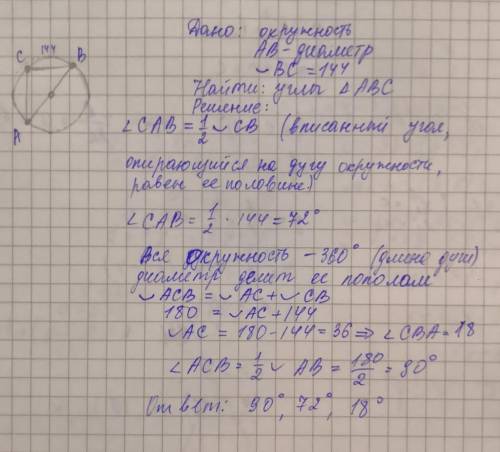 Дано: окружность
АВ - диаметр
◡BC = 144
Найти: углы ΔABC
Решение:
C 144 B
A
∠CAB = 1/2 ◡CB (вписанный угол,
опирающийся на дугу окружности,
равен ее половине)
∠CAB = 1/2 · 144 = 72°
Вся окружность - 360° (длина дуги)
диаметр делит ее пополам
◡ACB = ◡AC + ◡CB
180 = ◡AC + 144
◡AC = 180 - 144 = 36 ⇒ ∠CBA = 18
∠ACB = 1/2 ◡AB = 180/2 = 90°
Ответ: 90°, 72°, 18°